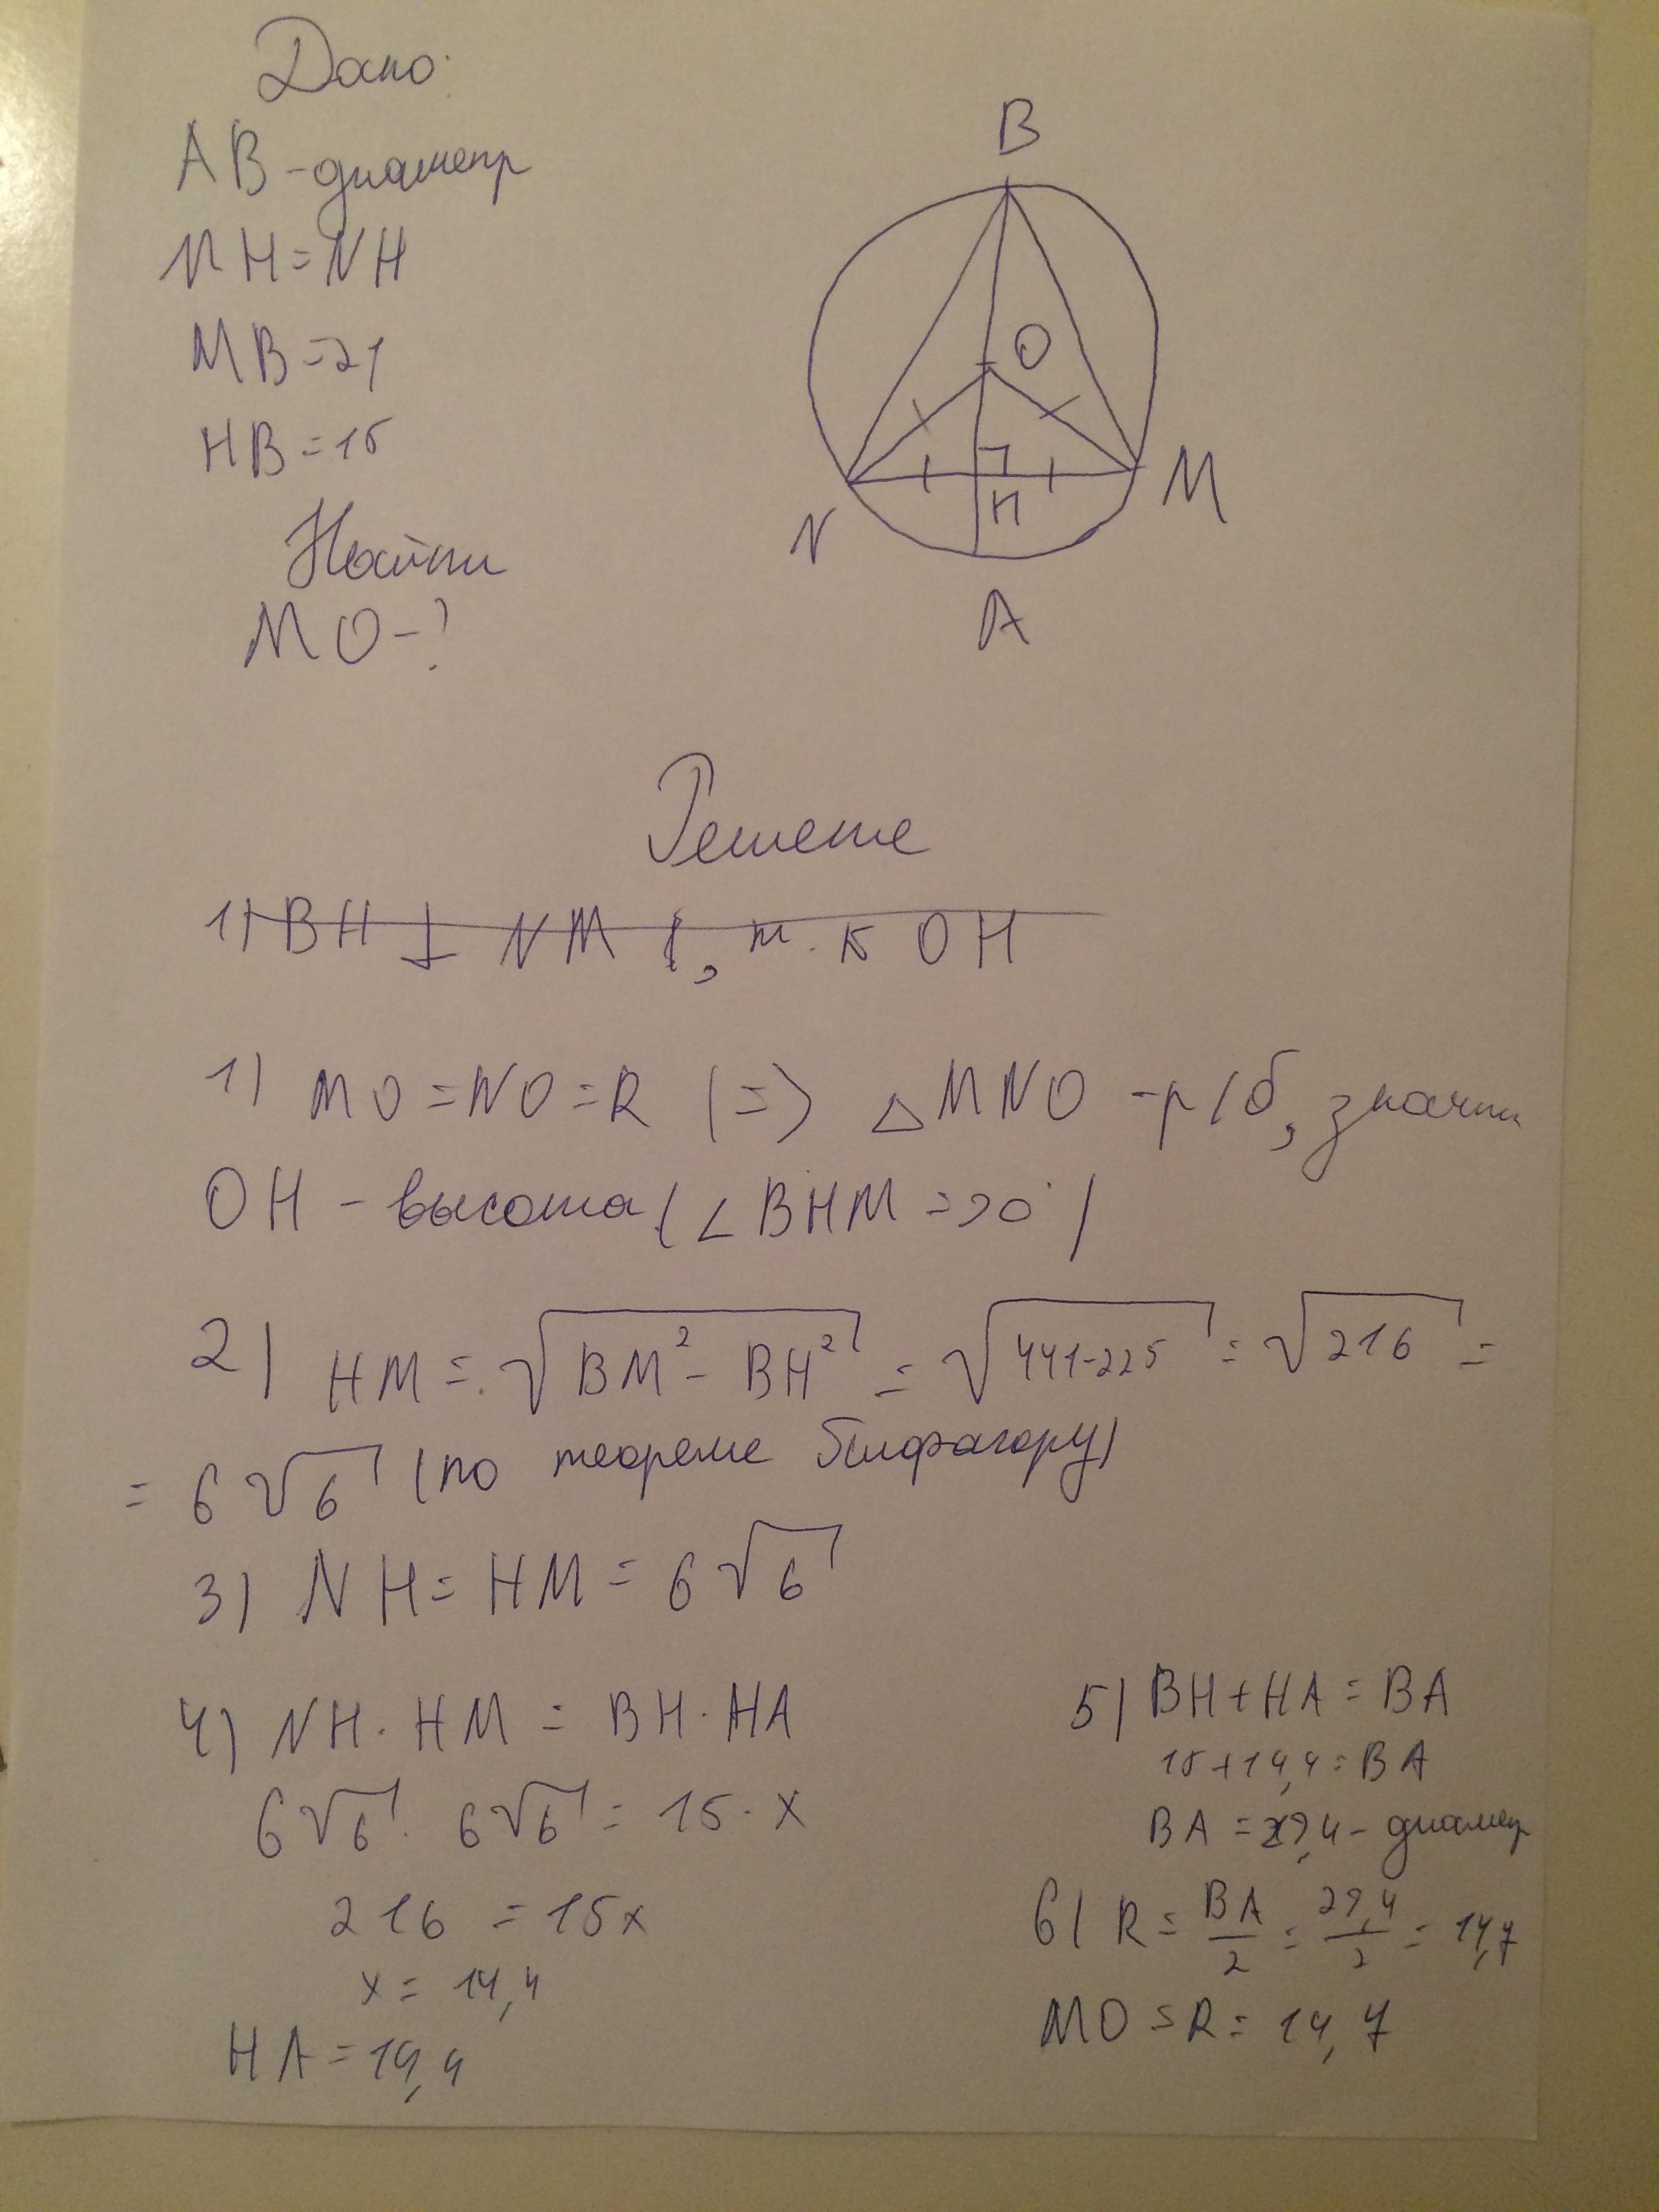 Дано:
AB - диаметр
MH = NH
MB = 21
HB = 15
Найти
MO - ?
B
O
H
N
M
A
Решение
1) BH ⊥ NM , т.к OH
1) MO = NO = R (=>) △ MNO - р/б, значит
OH - высота (∠ BHM = 90°)
2) HM = √(BM² - BH²) = √(441-225) = √216 =
= 6√6 (по теореме Пифагору)
3) NH = HM = 6√6
4) NH · HM = BH · HA
6√6 · 6√6 = 15 · x
216 = 15x
x = 14,4
HA = 14,4
5) BH + HA = BA
15 + 14,4 = BA
BA = 29,4 - диаметр
6) R = BA/2 = 29,4/2 = 14,7
MO = R = 14,7